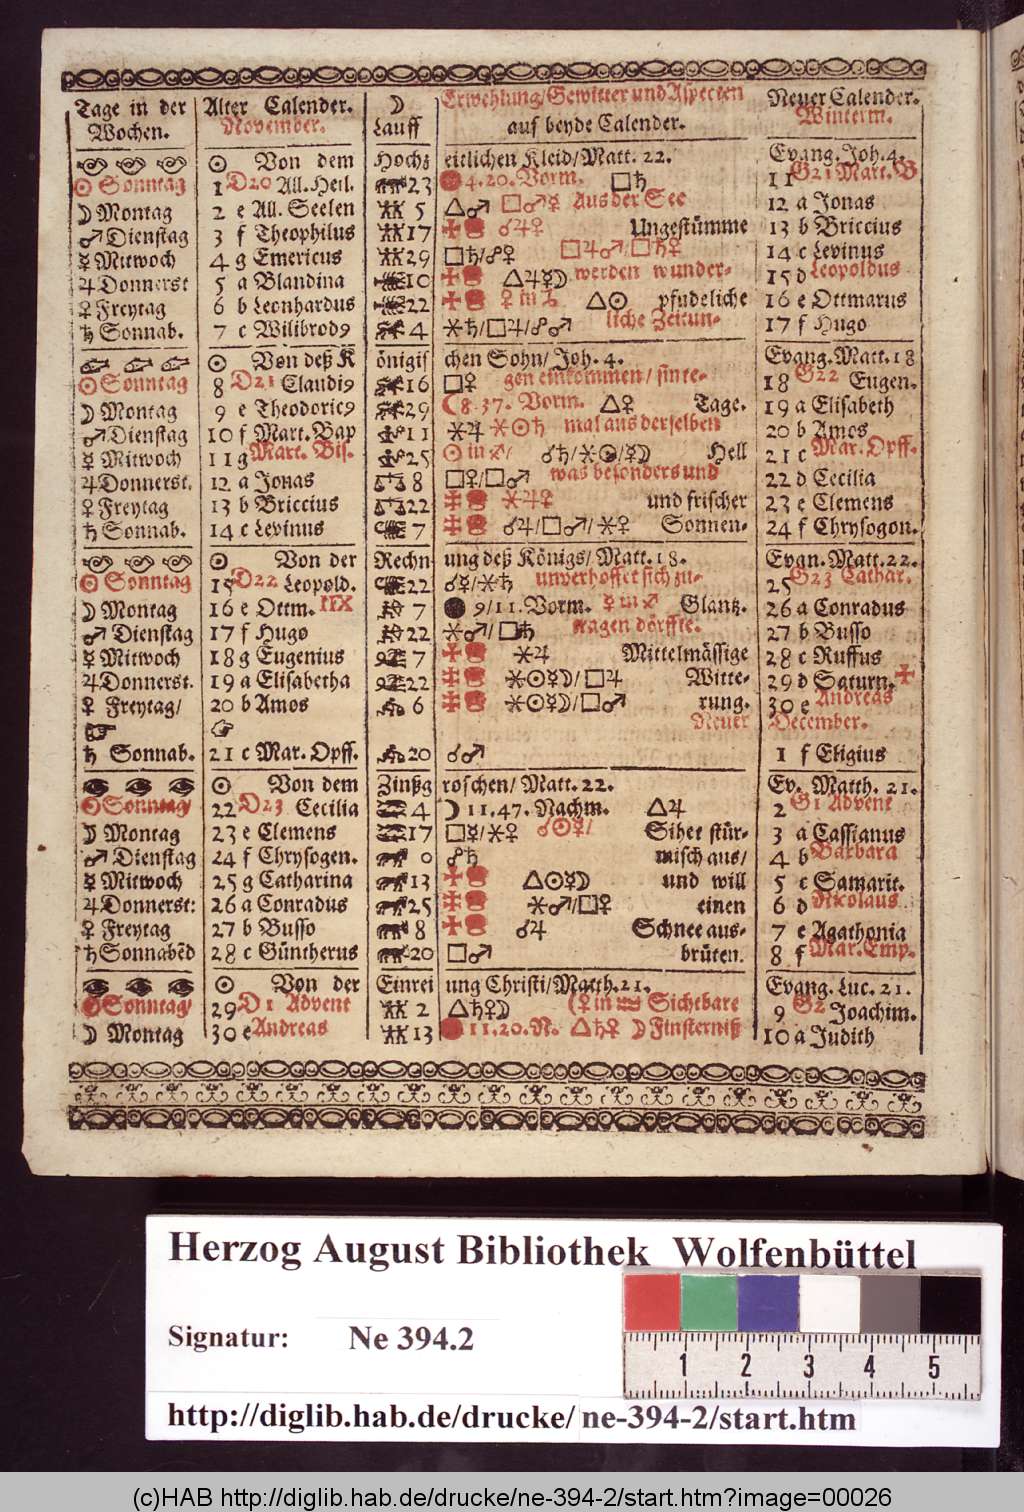 Tage in der Alter Calender. ☽ Erwehlung/ Gewitter und Aspecten Neuer Calender.
Wochen. November. Lauff auf beyde Calender. Winterm.
☉ Von dem Hochz eitlichen Kleid/ Matt. 22. Evang. Joh. 4.
☉ Sonntag 1 D20 All. Heil. 23 4.20. Vorm. □♄ 11 G21 Mart. B
☽ Montag 2 e All. Seelen 5 △♂ □♂☿ Aus der See 12 a Jonas
♂ Dienstag 3 f Theophilus 17 ☌♃♀ Ungestümme 13 b Briccius
☿ Mitwoch 4 g Emericus 29 □♄/☍♀ □♃♂/□♄♀ 14 c Levinus
♃ Donnerst 5 a Blandina 10 △♃☿☽ werden wunder- 15 d Leopoldus
♀ Freytag 6 b Leonhardus 22 ♀ in ♑ △☉ pfudeliche 16 e Ottmarus
♄ Sonnab. 7 c Wilibrod9 4 ⚹♄/□♃/☍♂ liche Zeitun- 17 f Hugo
☉ Von deß K önigis chen Sohn/ Joh. 4. Evang. Matt. 18
☉ Sonntag 8 D21 Claudi9 16 □♀ gen einkommen/ sinte- 18 G22 Eugen.
☽ Montag 9 e Theodoric9 29 ☾8.37. Vorm. △♀ Tage. 19 a Elisabeth
♂ Dienstag 10 f Mart. Bap 11 ⚹♃ ⚹☉♄ mal aus derselben 20 b Amos
☿ Mitwoch 11 g Mart. Bis. 25 ☉ in ♐/ ☌♄/⚹☉/☿☽ Hell 21 c Mar. Opff.
♃ Donnerst. 12 a Jonas 8 □♀/□♂ was besonders und 22 d Cecilia
♀ Freytag 13 b Briccius 22 ⚹♃♀ und frischer 23 e Clemens
♄ Sonnab. 14 c Levinus 7 ☌♃/□♂/⚹♀ Sonnen- 24 f Chrysogon.
☉ Von der Rechn ung deß Königs/ Matt. 18. Evan. Matt. 22.
☉ Sonntag 15 D22 Leopold. 22 ☌☿/⚹♄ unverhoffet sich zu- 25 G23 Cathar.
☽ Montag 16 e Ottm. IIX 7 9/11. Vorm. ☿ in ♐ Glantz. 26 a Conradus
♂ Dienstag 17 f Hugo 22 ⚹♂/□♄ tragen dörffte. 27 b Busso
☿ Mitwoch 18 g Eugenius 7 ⚹♃ Mittelmässige 28 c Ruffus
♃ Donnerst. 19 a Elisabetha 22 ⚹☉☿☽/□♃ Witte- 29 d Saturn.
♀ Freytag/ 20 b Amos 6 ⚹☉☿☽/□♂ rung. 30 e Andreas
Neuer December.
♄ Sonnab. 21 c Mar. Opff. 20 ☌♂ 1 f Eligius
☉ Von dem Zinßg roschen/ Matt. 22. Ev. Matth. 21.
☉ Sonntag 22 D23 Cecilia 4 ☽ 11.47. Nachm. △♃ 2 G1 Advent
☽ Montag 23 e Clemens 17 □☿/⚹♀ ☌☉☿/ Sihet stür- 3 a Cassianus
♂ Dienstag 24 f Chrysogen. 0 ☍♄ misch aus/ 4 b Barbara
☿ Mitwoch 25 g Catharina 13 △☉☿☽ und will 5 c Samarit.
♃ Donnerst: 26 a Conradus 25 ⚹♂/□♀ einen 6 d Nicolaus
♀ Freytag 27 b Busso 8 ☌♃ Schnee aus- 7 e Agathonia
♄ Sonnabēd 28 c Güntherus 20 □♂ brüten. 8 f Mar. Emp.
☉ Von der Einrei ung Christi/ Matth. 21. Evang. Luc. 21.
☉ Sonntag 29 D1 Advent 2 △♄♀☽ (♀ in ♒ Sichtbare 9 G2 Joachim.
☽ Montag 30 e Andreas 13 11.20. N. △♄♀ ☽ Finsterniß 10 a Judith
Herzog August Bibliothek Wolfenbüttel
Signatur: Ne 394.2
1 2 3 4 5
http://diglib.hab.de/drucke/ne-394-2/start.htm
(c)HAB http://diglib.hab.de/drucke/ne-394-2/start.htm?image=00026